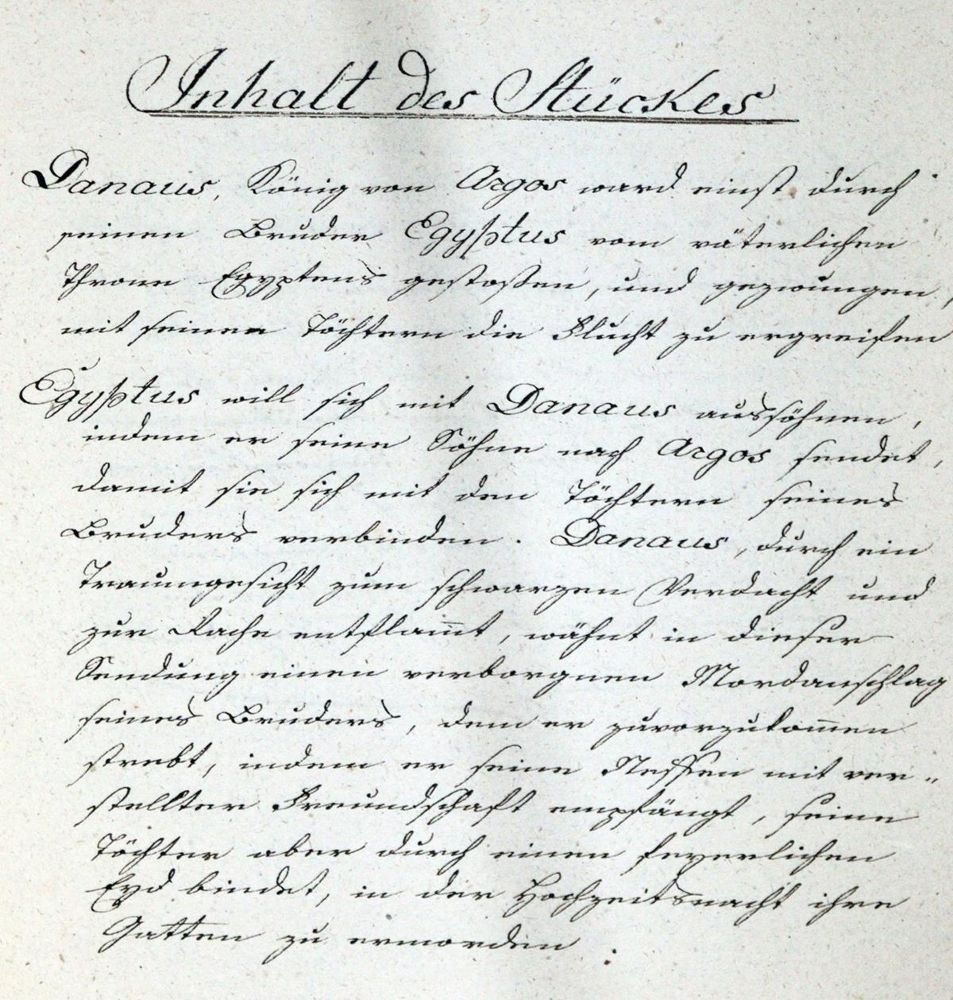 Inhalt des Stückes
Danaus, König von Argos ward einst durch
seinen Bruder Egyptus vom väterlichen
Throne Egyptens gestoßen, und gezwungen,
mit seinen Töchtern die Flucht zu ergreifen
Egyptus will sich mit Danaus aussöhnen,
indem er seine Söhne nach Argos sendet,
damit sie sich mit den Töchtern seines
Bruders verbinden. Danaus, durch ein
Traumgesicht zum schwarzen Verdacht und
zur Rache entflam̅t, wähnt in dieser
Sendung einen verborgnen Mordanschlag
seines Bruders, dem er zuvorzukom̅en
strebt, indem er seine Neffen mit ver„
stellter Freundschaft empfängt, seine
Töchter aber durch einen feyerlichen
Eyd bindet, in der Hochzeitsnacht ihre
Gatten zu ermorden.